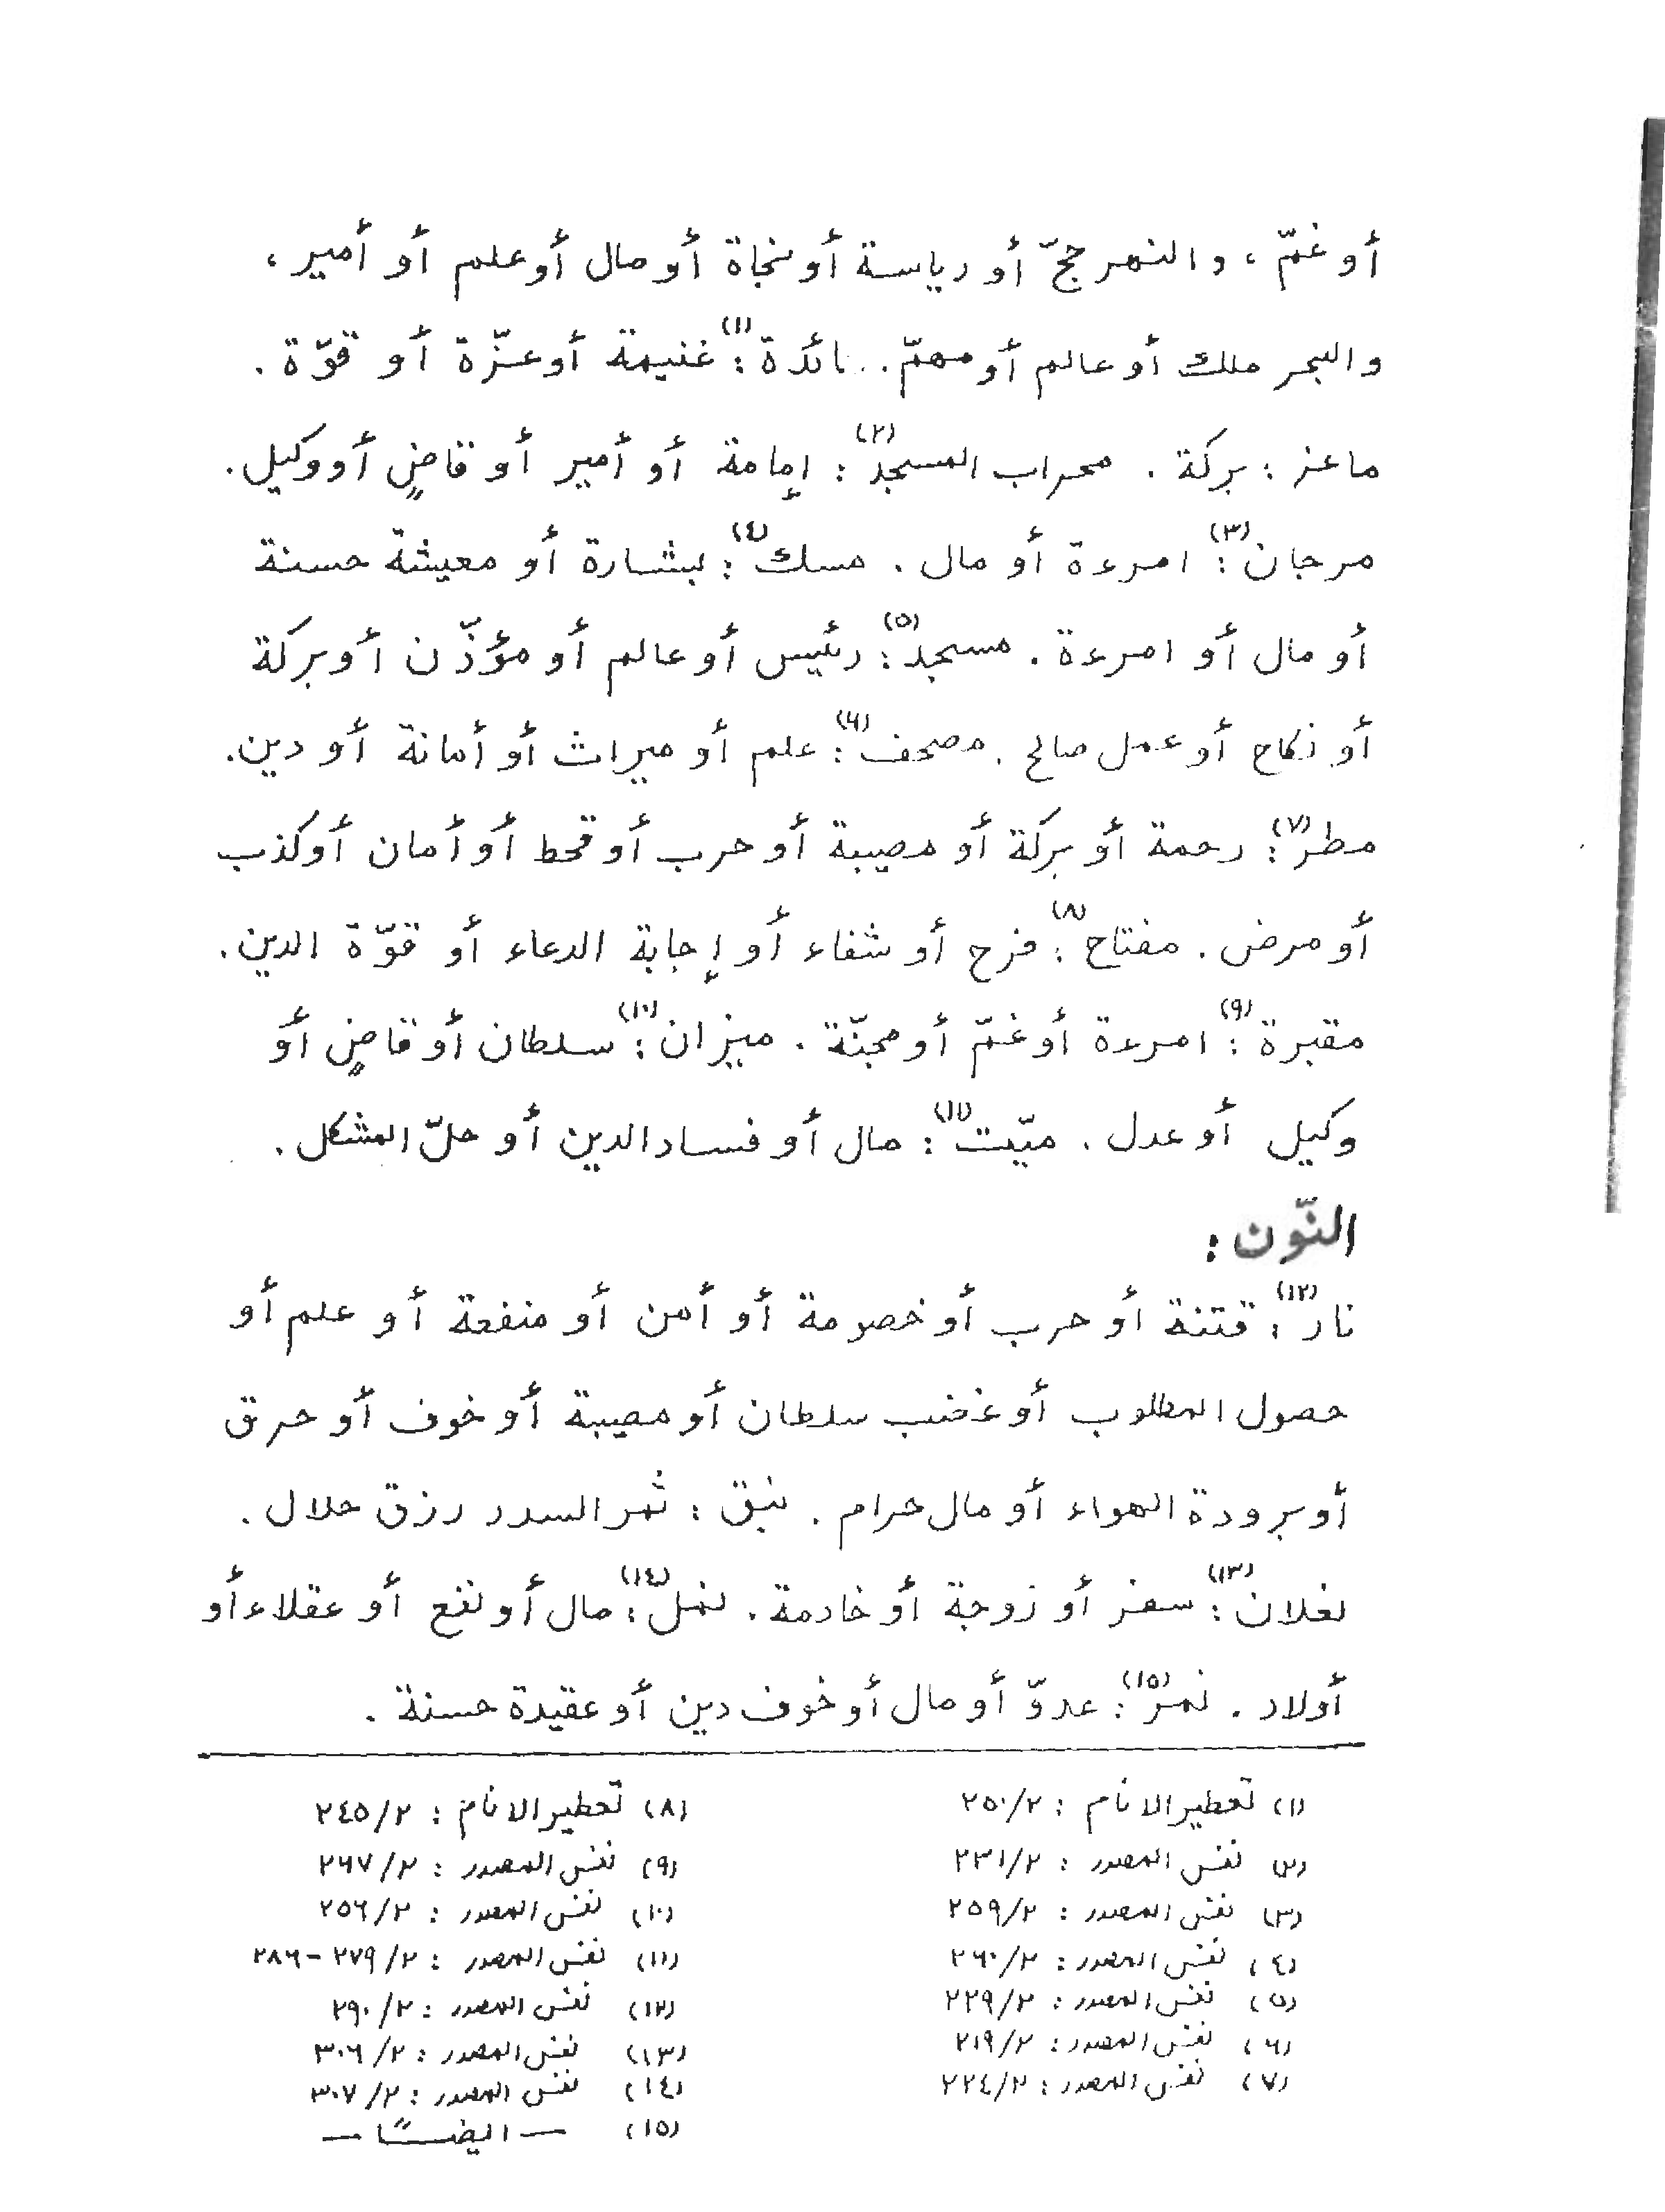 أو غمّ ، والنهر حجّ أو رياسة أو نجاة أو مال أو علم أو أمير ،
والبحر ملك أو عالم أو مهمّ . مائدة (١) : غنيمة أو عزّة أو قوّة .
ماعز : بركة . محراب المسجد (٢) : إمامة أو أمير أو قاضٍ أو وكيل .
مرجان (٣) : امرءة أو مال . مسك (٤) : بشارة أو معيشة حسنة
أو مال أو امرءة . مسجد (٥) : رئيس أو عالم أو مؤذّن أو بركة
أو نكاح أو عمل صالح . مصحف (٦) : علم أو ميراث أو أمانة أو دين .
مطر (٧) : رحمة أو بركة أو مصيبة أو حرب أو قحط أو أمان أو كذب
أو مرض . مفتاح (٨) : فرج أو شفاء أو إجابة الدعاء أو قوّة الدين .
مقبرة (٩) : امرءة أو غمّ أو محنّة . ميزان (١٠) : سلطان أو قاضٍ أو
وكيل أو عدل . ميّت (١١) : مال أو فساد الدين أو حلّ المشكل .
النّون :
نار (١٢) : فتنة أو حرب أو خصومة أو أمن أو منفعة أو علم أو
حصول المطلوب أو غضب سلطان أو مصيبة أو خوف أو حرق
أو برودة الهواء أو مال حرام . نبق : ثمر السدر رزق حلال .
نعلان (١٣) : سفر أو زوجة أو خادمة . نمل (١٤) : مال أو نفع أو عقلاء أو
أولاد . نمر (١٥) : عدوّ أو مال أو خوف دين أو عقيدة حسنة .
(١) تعطير الانام : ٢٥٠/٢
(٢) نفس المصدر : ٢٣١/٢
(٣) نفس المصدر : ٢٥٩/٢
(٤) نفس المصدر : ٢٦٠/٢
(٥) نفس المصدر : ٢٢٩/٢
(٦) نفس المصدر : ٢١٩/٢
(٧) نفس المصدر : ٢٢٤/٢
(٨) تعطير الانام : ٢٤٥/٢
(٩) نفس المصدر : ٢٦٧/٢
(١٠) نفس المصدر : ٢٥٦/٢
(١١) نفس المصدر : ٢٧٩/٢ - ٢٨٦
(١٢) نفس المصدر : ٢٩٠/٢
(١٣) نفس المصدر : ٣٠٦/٢
(١٤) نفس المصدر : ٣٠٧/٢
(١٥) — ايضًا —